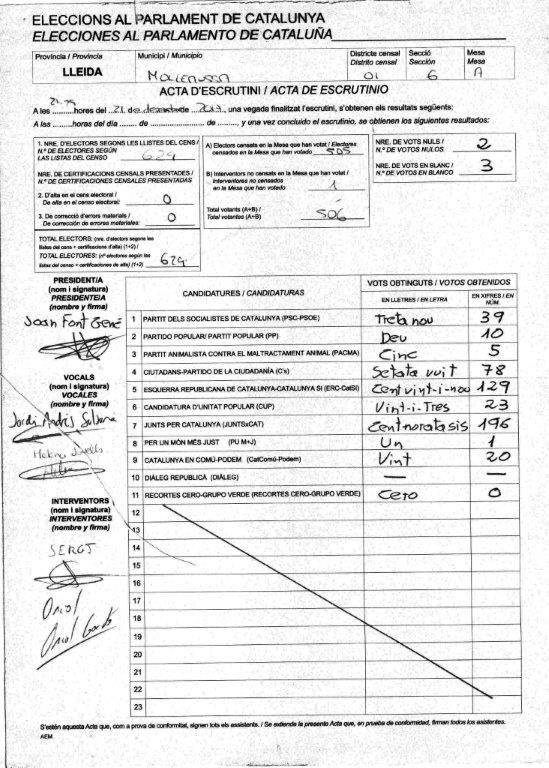 ELECCIONS AL PARLAMENT DE CATALUNYA
ELECCIONES AL PARLAMENTO DE CATALUÑA
Província / Provincia
LLEIDA
Municipi / Municipio
Mollerussa
Districte censal
Distrito censal
01
Secció
Sección
6
Mesa
Mesa
A
ACTA D'ESCRUTINI / ACTA DE ESCRUTINIO
A les ........hores del 21 de desembre de 2017 una vegada finalitzat l'escrutini, s'obtenen els resultats següents:
A las ........ horas del día ........ de ........ de ........, y una vez concluido el escrutinio, se obtienen los siguientes resultados:
1. NRE. D'ELECTORS SEGONS LES LLISTES DEL CENS /
N.º DE ELECTORES SEGÚN
LAS LISTAS DEL CENSO
629
NRE. DE CERTIFICACIONS CENSALS PRESENTADES /
N.º DE CERTIFICACIONES CENSALES PRESENTADAS
2. D'alta en el cens electoral /
De alta en el censo electoral:
0
3. De correcció d'errors materials /
De corrección de errores materiales:
0
TOTAL ELECTORS: (nre. d'electors segons les
llistes del cens + certificacions d'alta) (1+2) /
TOTAL ELECTORES: (nº electores según las
listas del censo + certificaciones de alta) (1+2)
629
A) Electors censats en la Mesa que han votat / Electores
censados en la Mesa que han votado
505
B) Interventors no censats en la Mesa que han votat /
Interventores no censados
en la Mesa que han votado
1
Total votants (A+B) /
Total votantes (A+B)
506
NRE. DE VOTS NULS /
N.º DE VOTOS NULOS
2
NRE. DE VOTS EN BLANC /
N.º DE VOTOS EN BLANCO
3
PRESIDENT/A
(nom i signatura)
PRESIDENTE/A
(nombre y firma)
Joan Font Gené
VOCALS
(nom i signatura)
VOCALES
(nombre y firma)
Jordi Andrés
Helena
INTERVENTORS
(nom i signatura)
INTERVENTORES
(nombre y firma)
SERGI
Oriol
Oriol
CANDIDATURES / CANDIDATURAS
VOTS OBTINGUTS / VOTOS OBTENIDOS
EN LLETRES / EN LETRA
EN XIFRES / EN NÚM.
1 PARTIT DELS SOCIALISTES DE CATALUNYA (PSC-PSOE) Treta nou 39
2 PARTIDO POPULAR/ PARTIT POPULAR (PP) Deu 10
3 PARTIT ANIMALISTA CONTRA EL MALTRACTAMENT ANIMAL (PACMA) Cinc 5
4 CIUTADANS-PARTIDO DE LA CIUDADANÍA (C's) Setata vuit 78
5 ESQUERRA REPUBLICANA DE CATALUNYA-CATALUNYA SÍ (ERC-CatSí) Cent vint-i-nou 129
6 CANDIDATURA D'UNITAT POPULAR (CUP) Vint-i-Tres 23
7 JUNTS PER CATALUNYA (JUNTSxCAT) Cent norata sis 196
8 PER UN MÓN MÉS JUST (PU M+J) Un 1
9 CATALUNYA EN COMÚ-PODEM (CatComú-Podem) Vint 20
10 DIÀLEG REPUBLICÀ (DIÀLEG) — —
11 RECORTES CERO-GRUPO VERDE (RECORTES CERO-GRUPO VERDE) Cero 0
12
13
14
15
16
17
18
19
20
21
22
23
S'estén aquesta Acta que, com a prova de conformitat, signen tots els assistents. / Se extiende la presente Acta que, en prueba de conformidad, firman todos los asistentes.
AEM